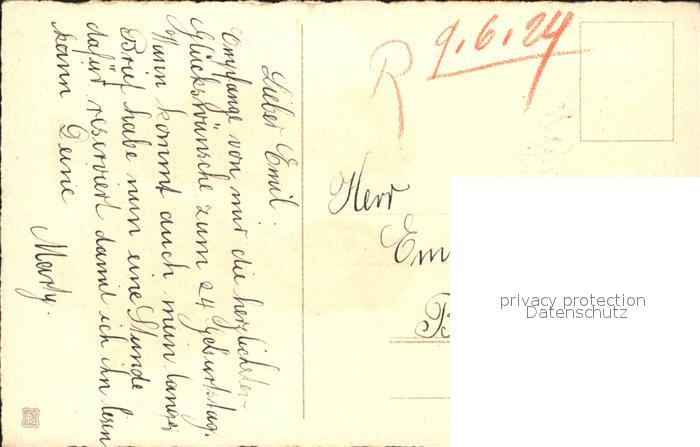 Lieber Emil.
Empfange von mir die herzlichsten
Glückswünsche zum 24 Geburtstag.
Wann kommt auch mein langer
Brief habe nun eine Stunde
dafür reserviert damit ich ihn lesen
kann Deine
Marty.
R 9.6.24
Herr
Em
B
privacy protection
Datenschutz